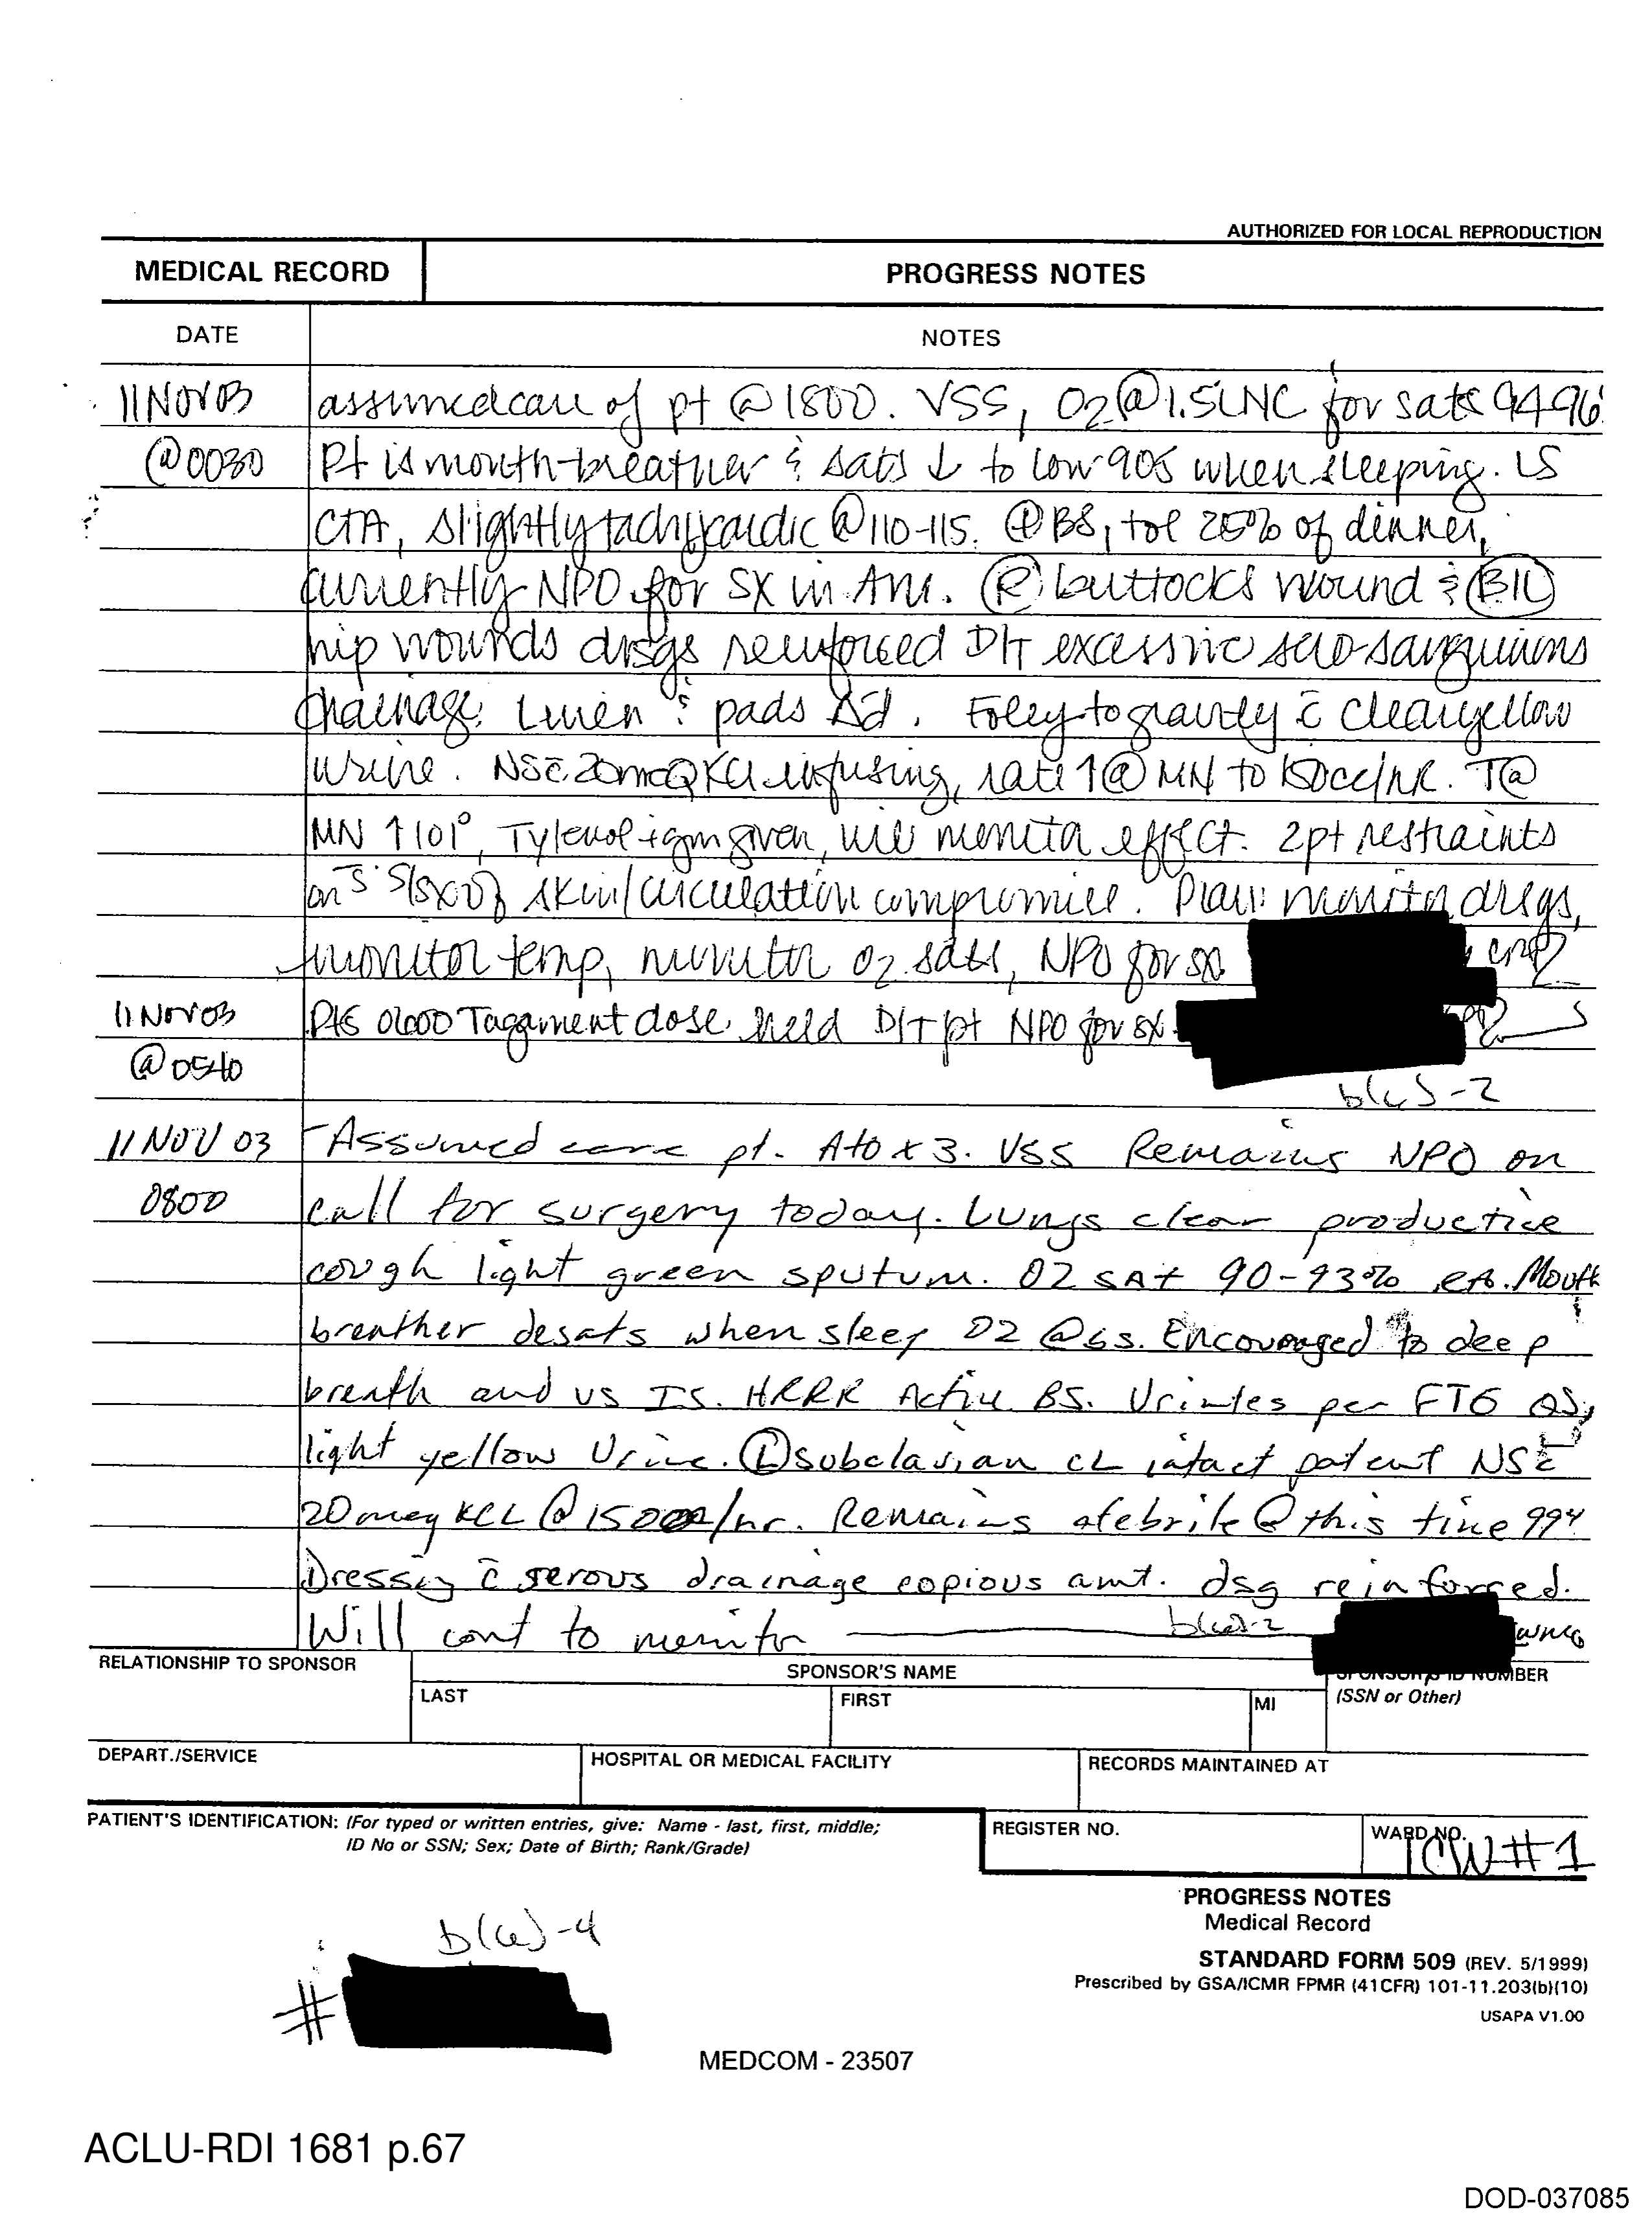 AUTHORIZED FOR LOCAL REPRODUCTION
MEDICAL RECORD
PROGRESS NOTES
DATE
NOTES
11 NOV 03 assumed care of pt @ 1800. VSS, O2 @ 1.5L NC for sats 94-96
@ 0030 Pt is mouth-breather & sats ↓ to low 90s when sleeping. LS
CTA, slightly tachycardic @ 110-115. ⊕ BS, tol 25% of dinner,
currently NPO for SX in Am. Ⓡ buttocks wound & BIL
hip wounds drsgs reinforced D/T excessive sero-sanguinins
drainage. Linen & pads Δ'd. Foley to gravity c̄ clear yellow
urine. NS c̄ 20 meQ KCl infusing, rate ↑ @ MN to 150cc/hr. T @
MN ↑ 101°, Tylenol given, will monitor effect. 2pt restraints
on s̄ S/SX of skin/circulation compromise. Plan: monitor drsgs,
monitor temp, monitor O2 sats, NPO for sx.
11 NOV 03 Pts 0600 Tagament dose held D/T pt NPO for sx.
@ 0540
b(6)-2
11 NOV 03 Assumed care pt. A+O x 3. VSS Remains NPO on
0800 call for surgery today. Lungs clear productive
cough light green sputum. O2 sat 90-93% RA. Mouth
breather desats when sleep O2 @ 6s. Encouraged to deep
breath and us IS. HRRR Active BS. Urintes per FTG QS,
light yellow Urine. Ⓛ subclavian CL intact patent NS c̄
20 meq KCL @ 150cc/hr. Remains afebrile @ this time 994
Dressig c̄ serous drainage copious amt. dsg reinforced.
Will cont to monitor b(6)-2
RELATIONSHIP TO SPONSOR
SPONSOR'S NAME
SPONSOR'S ID NUMBER
(SSN or Other)
LAST
FIRST
MI
DEPART./SERVICE
HOSPITAL OR MEDICAL FACILITY
RECORDS MAINTAINED AT
PATIENT'S IDENTIFICATION: (For typed or written entries, give: Name - last, first, middle;
ID No or SSN; Sex; Date of Birth; Rank/Grade)
REGISTER NO.
WARD NO.
ICW #1
b(6)-4
#
PROGRESS NOTES
Medical Record
STANDARD FORM 509 (REV. 5/1999)
Prescribed by GSA/ICMR FPMR (41CFR) 101-11.203(b)(10)
USAPA V1.00
MEDCOM - 23507
ACLU-RDI 1681 p.67
DOD-037085